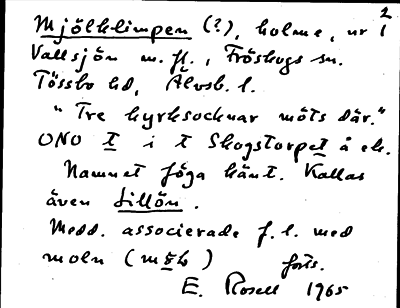 2
Mjölklimpen (?), holme, nr 1
Vallsjön m.fl., Fröskogs sn.
Tössbo hd, Älvsb. l.
"Tre kyrksocknar möts där."
ONO t i t Skogstorpet å ek.
Namnet föga känt. Kallas
även Lillön.
Medd. associerade f.l. med
moln ( ) forts.
E. Rosell 1965